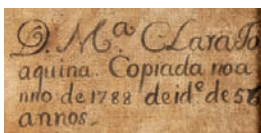 D. Mª. CLara Jo
aquina. Copiada noa
nno de 1788 de idᵉ. de 57
annos.